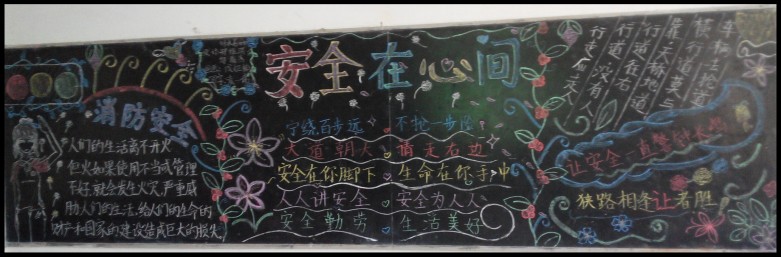 安全在心间
消防安全
人们的生活离不开火
但火如果使用不当或管理
不好,就会发生火灾,严重威
胁人们的生活,给人们的生命的
财产和国家的建设造成巨大的损失
宁绕百步远 不抢一步险
大道朝天 请走右边
安全在你脚下 生命在你手中
人人讲安全 安全为人人
安全勤劳 生活美好
车辆
横行道莫与
靠天桥地道
行道在右
行道 没有人
让安全一直繁
狭路相逢让者胜